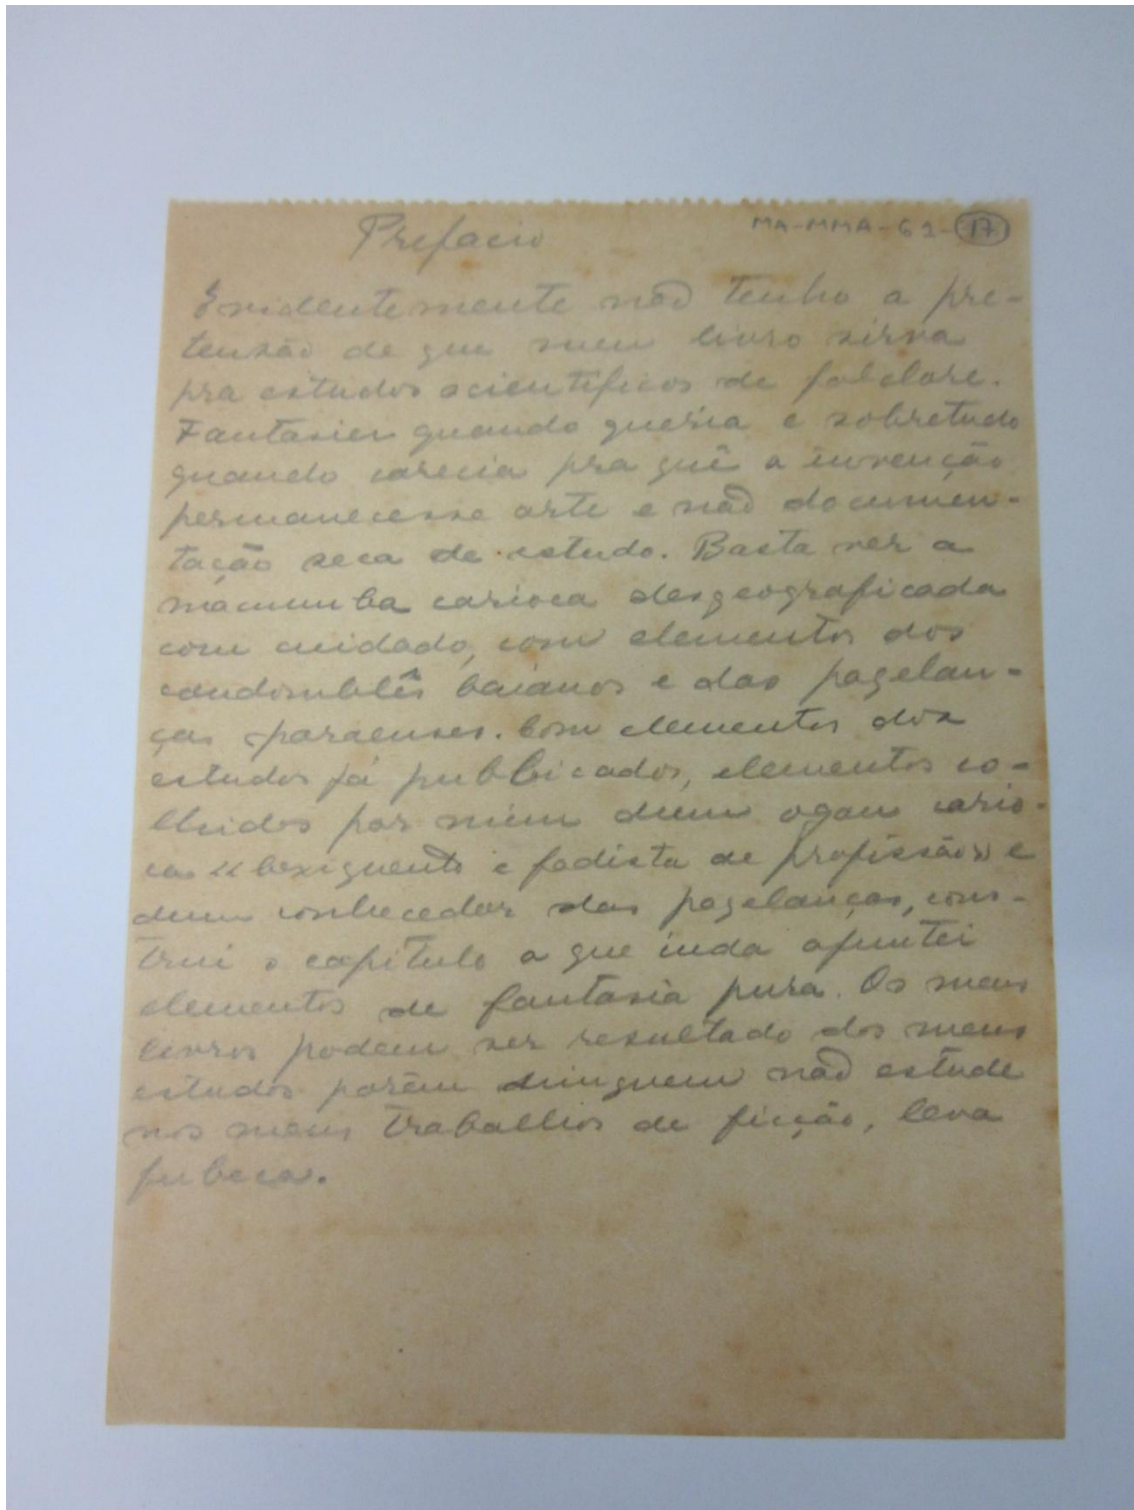 Prefacio
MA-MMA-61-17
Evidentemente não tenho a pre-
tensão de que meu livro sirva
pra estudos scientificos de folclore.
Fantasiei quando queria e sobretudo
quando carecia pra quê a invenção
permanecesse arte e não documen-
tação seca de estudo. Basta ver a
macumba carioca desgeograficada
com cuidado, com elementos dos
candomblês baianos e das pagelan-
ças paraenses. Com elementos dos
estudos já publicados, elementos co-
lhidos por mim dum ogan cario-
ca "bexiguento e fadista de profissão" e
dum conhecedor das pagelanças, cons-
trui o capítulo a que inda ajuntei
elementos de fantasia pura. Os meus
livros podem ser resultado dos meus
estudos porêm ninguem não estude
nos meus trabalhos de ficção, leva
fubeca.